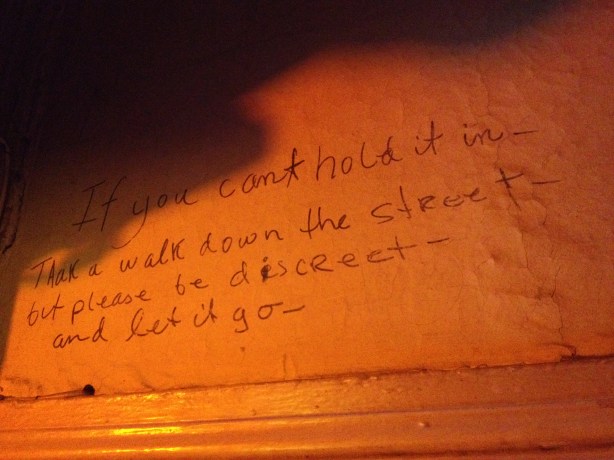 If you can't hold it in-
TAak a walk down the stREEt-
but please be discREEt-
and let it go-